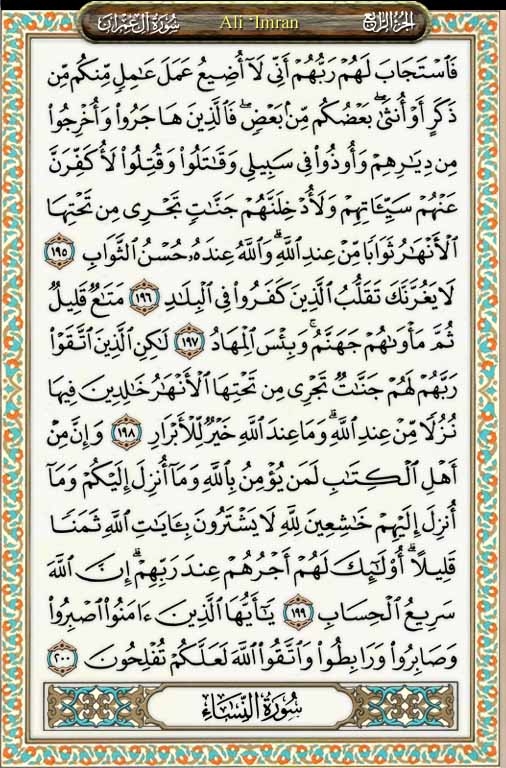 سُورَةُ آلِ عِمْرَان Ali 'Imran الجزء الرابع
فَٱسْتَجَابَ لَهُمْ رَبُّهُمْ أَنِّى لَآ أُضِيعُ عَمَلَ عَـٰمِلٍ مِّنكُم مِّن
ذَكَرٍ أَوْ أُنثَىٰ ۖ بَعْضُكُم مِّنۢ بَعْضٍ ۖ فَٱلَّذِينَ هَاجَرُوا۟ وَأُخْرِجُوا۟
مِن دِيَـٰرِهِمْ وَأُوذُوا۟ فِى سَبِيلِى وَقَـٰتَلُوا۟ وَقُتِلُوا۟ لَأُكَفِّرَنَّ
عَنْهُمْ سَيِّـَٔاتِهِمْ وَلَأُدْخِلَنَّهُمْ جَنَّـٰتٍ تَجْرِى مِن تَحْتِهَا
ٱلْأَنْهَـٰرُ ثَوَابًا مِّنْ عِندِ ٱللَّهِ ۗ وَٱللَّهُ عِندَهُۥ حُسْنُ ٱلثَّوَابِ ١٩٥
لَا يَغُرَّنَّكَ تَقَلُّبُ ٱلَّذِينَ كَفَرُوا۟ فِى ٱلْبِلَـٰدِ ١٩٦ مَتَـٰعٌ قَلِيلٌ
ثُمَّ مَأْوَىٰهُمْ جَهَنَّمُ ۚ وَبِئْسَ ٱلْمِهَادُ ١٩٧ لَـٰكِنِ ٱلَّذِينَ ٱتَّقَوْا۟
رَبَّهُمْ لَهُمْ جَنَّـٰتٌ تَجْرِى مِن تَحْتِهَا ٱلْأَنْهَـٰرُ خَـٰلِدِينَ فِيهَا
نُزُلًا مِّنْ عِندِ ٱللَّهِ ۗ وَمَا عِندَ ٱللَّهِ خَيْرٌ لِّلْأَبْرَارِ ١٩٨ وَإِنَّ مِنْ
أَهْلِ ٱلْكِتَـٰبِ لَمَن يُؤْمِنُ بِٱللَّهِ وَمَآ أُنزِلَ إِلَيْكُمْ وَمَآ
أُنزِلَ إِلَيْهِمْ خَـٰشِعِينَ لِلَّهِ لَا يَشْتَرُونَ بِـَٔايَـٰتِ ٱللَّهِ ثَمَنًا
قَلِيلًا ۗ أُو۟لَـٰٓئِكَ لَهُمْ أَجْرُهُمْ عِندَ رَبِّهِمْ ۗ إِنَّ ٱللَّهَ
سَرِيعُ ٱلْحِسَابِ ١٩٩ يَـٰٓأَيُّهَا ٱلَّذِينَ ءَامَنُوا۟ ٱصْبِرُوا۟
وَصَابِرُوا۟ وَرَابِطُوا۟ وَٱتَّقُوا۟ ٱللَّهَ لَعَلَّكُمْ تُفْلِحُونَ ٢٠٠
سُورَةُ النِّسَاءِ